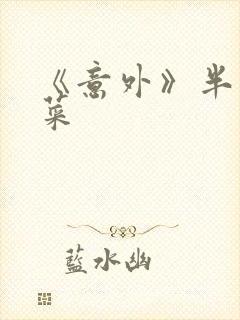 《意外》半
菜
藍水幽